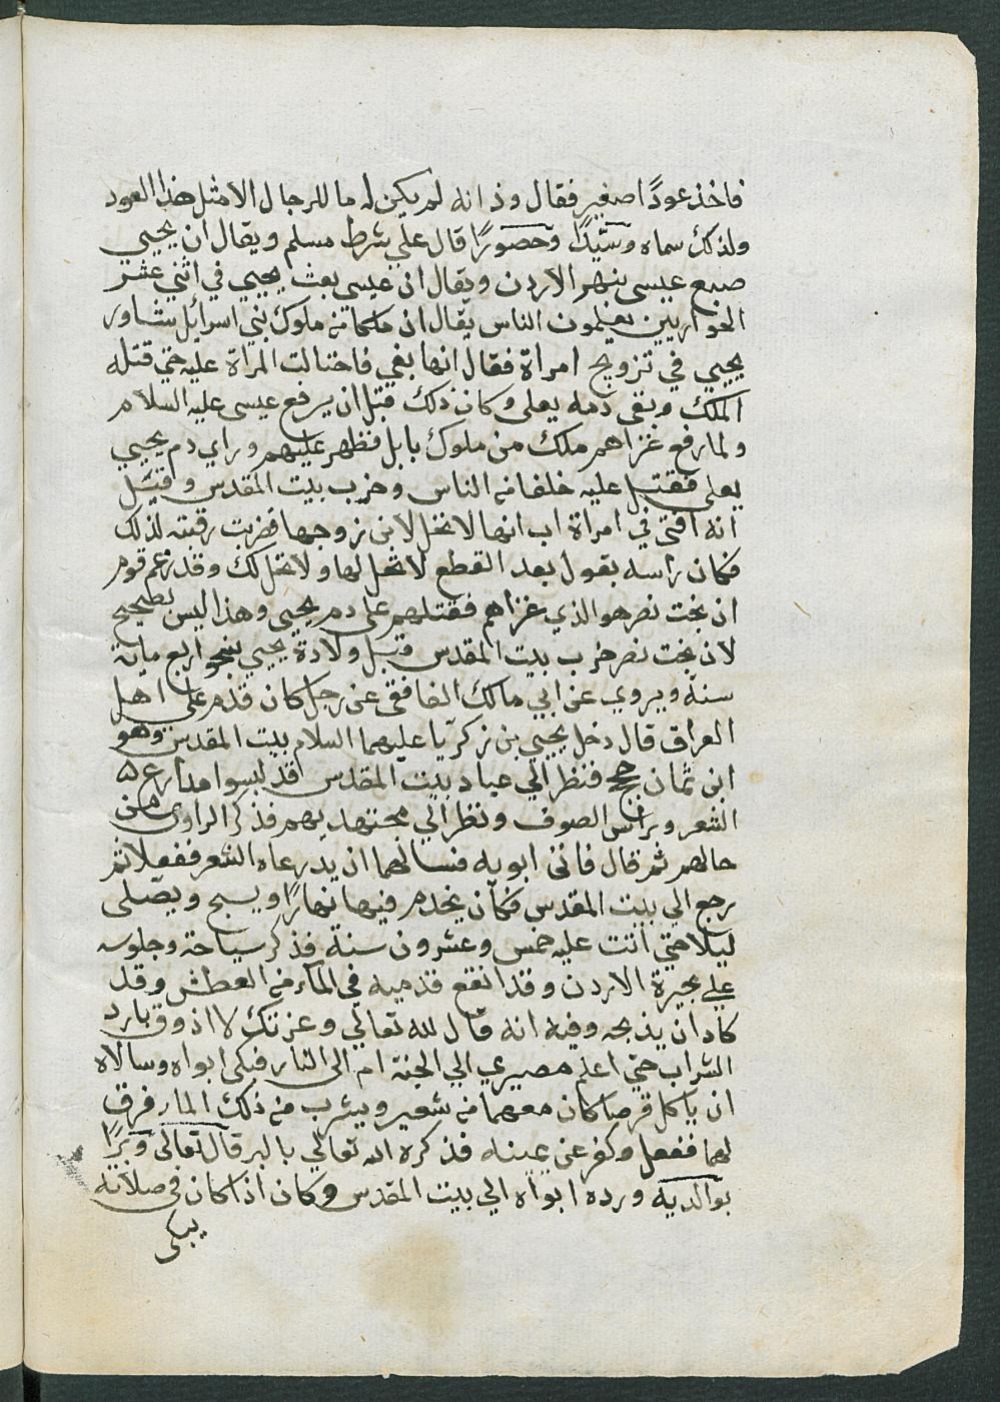 فاخذ عودًا صغير فقال وذ انه لم يكن له ما للرجال الا مثل هذا العود
ولذلك سماه وسَيِّدًا وحصورًا قال علي شرط مسلم ويقال ان يحيى
صبع عيسى بنهر الاردن ويقال ان عيسى بعث يحيي في اثني عشر
الحواريين يعلمون الناس يقال ان ملكا من ملوك بني اسرائيل شاور
يحيي في تزويج امراة فقال انها بغي فاحتالت المراة عليه حتي قتله
الملك وبقي دمه يغلي وكان ذلك قبل ان يرفع عيسى عليه السلام
ولما رفع غزاهم ملك من ملوك بابل فظهر عليهم وراي دم يحيي
يغلي فقتل عليه خلقا من الناس وخرب بيت المقدس وقيل
انه افتى في امراة اب انها لا تحل لابن زوجها فضربت رقبته لذلك
فكان راسه يقول بعد القطع لا تحل لها ولا تحل لك وقد زعم قوم
ان بخت نصر هو الذي غزاهم فقتلهم على دم يحيي وهذا ليس بصحيح
لان بخت نصر خرب بيت المقدس قبل ولادة يحيي بنحو اربع ماية
سنة ويروي عن ابي مالك الغافقي عن رجل كان قدم علي اهل
العراق قال دخل يحيي بن زكريا عليهما السلام بيت المقدس وهو
ابن ثمان حجج فنظر الي عباد بيت المقدس قد لبسوا مدارع
الشعر وبرانس الصوف ونظر الي مجتهديهم فذكر الراوي من
حالهم ثم قال فاتى ابويه فسالهما ان يدرعاه الشعر ففعلا ثم
رجع الي بيت المقدس فكان يخدم فيها نهارًا ويسبح ويصلي
ليلا حتي اتت عليه خمس وعشرون سنة فذكر سياحته وجلوسه
علي بحيرة الاردن وقد انقع قدميه في الماء من العطش وقد
كاد ان يذبحه وفيه انه قال لله تعالي وعزتك لا اذوق بارد
الشراب حتي اعلم مصيري الي الجنة ام الى النار فبكى ابواه وسالاه
ان ياكل قرصا كان معهما من شعير ويشرب من ذلك الماء فرق
لهما ففعل وكفر عن يمينه فذكره الله تعالي بالبر قال تعالى وبَرًّا
بوالديه ورده ابواه الي بيت المقدس وكان اذا كان في صلاته
يبكى